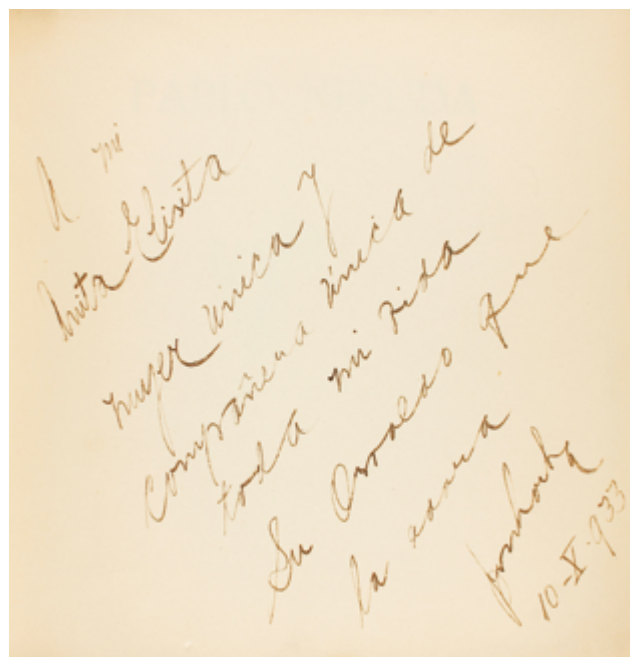 A mi
Anita Elisita
mujer única y
compañera única de
toda mi vida
Su Osvaldo que
la adora
10-X-933